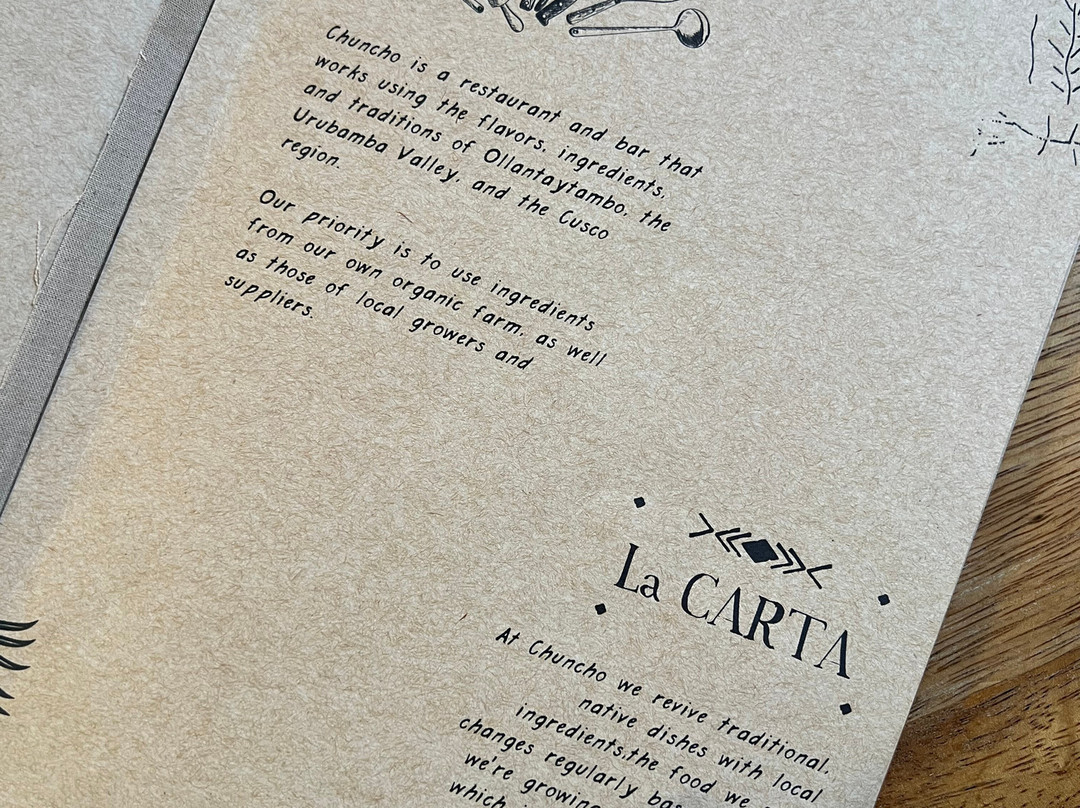 Chuncho is a restaurant and bar that
works using the flavors, ingredients,
and traditions of Ollantaytambo, the
Urubamba Valley, and the Cusco
region.
Our priority is to use ingredients
from our own organic farm, as well
as those of local growers and
suppliers.
La CARTA
At Chuncho we revive traditional,
native dishes with local
ingredients,the food we
changes regularly
we're growing
which